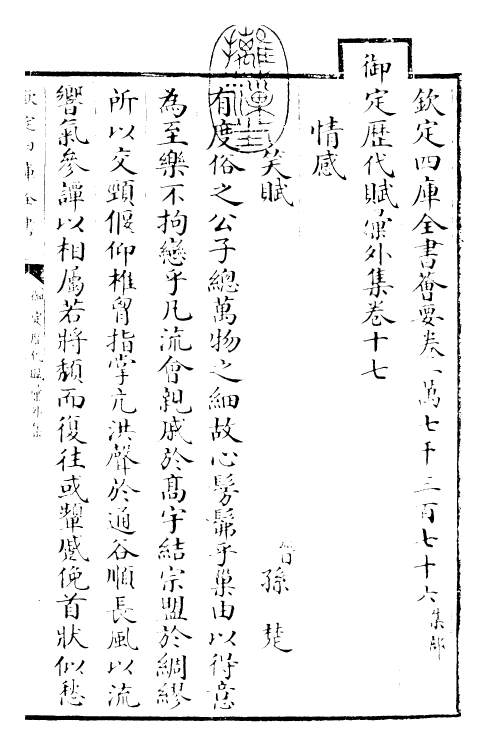 欽定四庫全書薈要卷一萬七千三百七十六集部
御定歷代賦彙外集卷十七
情感
笑賦
晉孫楚
有度俗之公子總萬物之細故心髣髴乎巢由以得意
為至樂不拘戀乎凡流會親戚於髙宇結宗盟於綢繆
所以交頸偃仰椎胷指掌亢洪聲於通谷順長風以流
響氣參譚以相屬若將頹而復往或顰蹙俛首狀似愁
欽定四庫全書
御定歷代賦彙外集